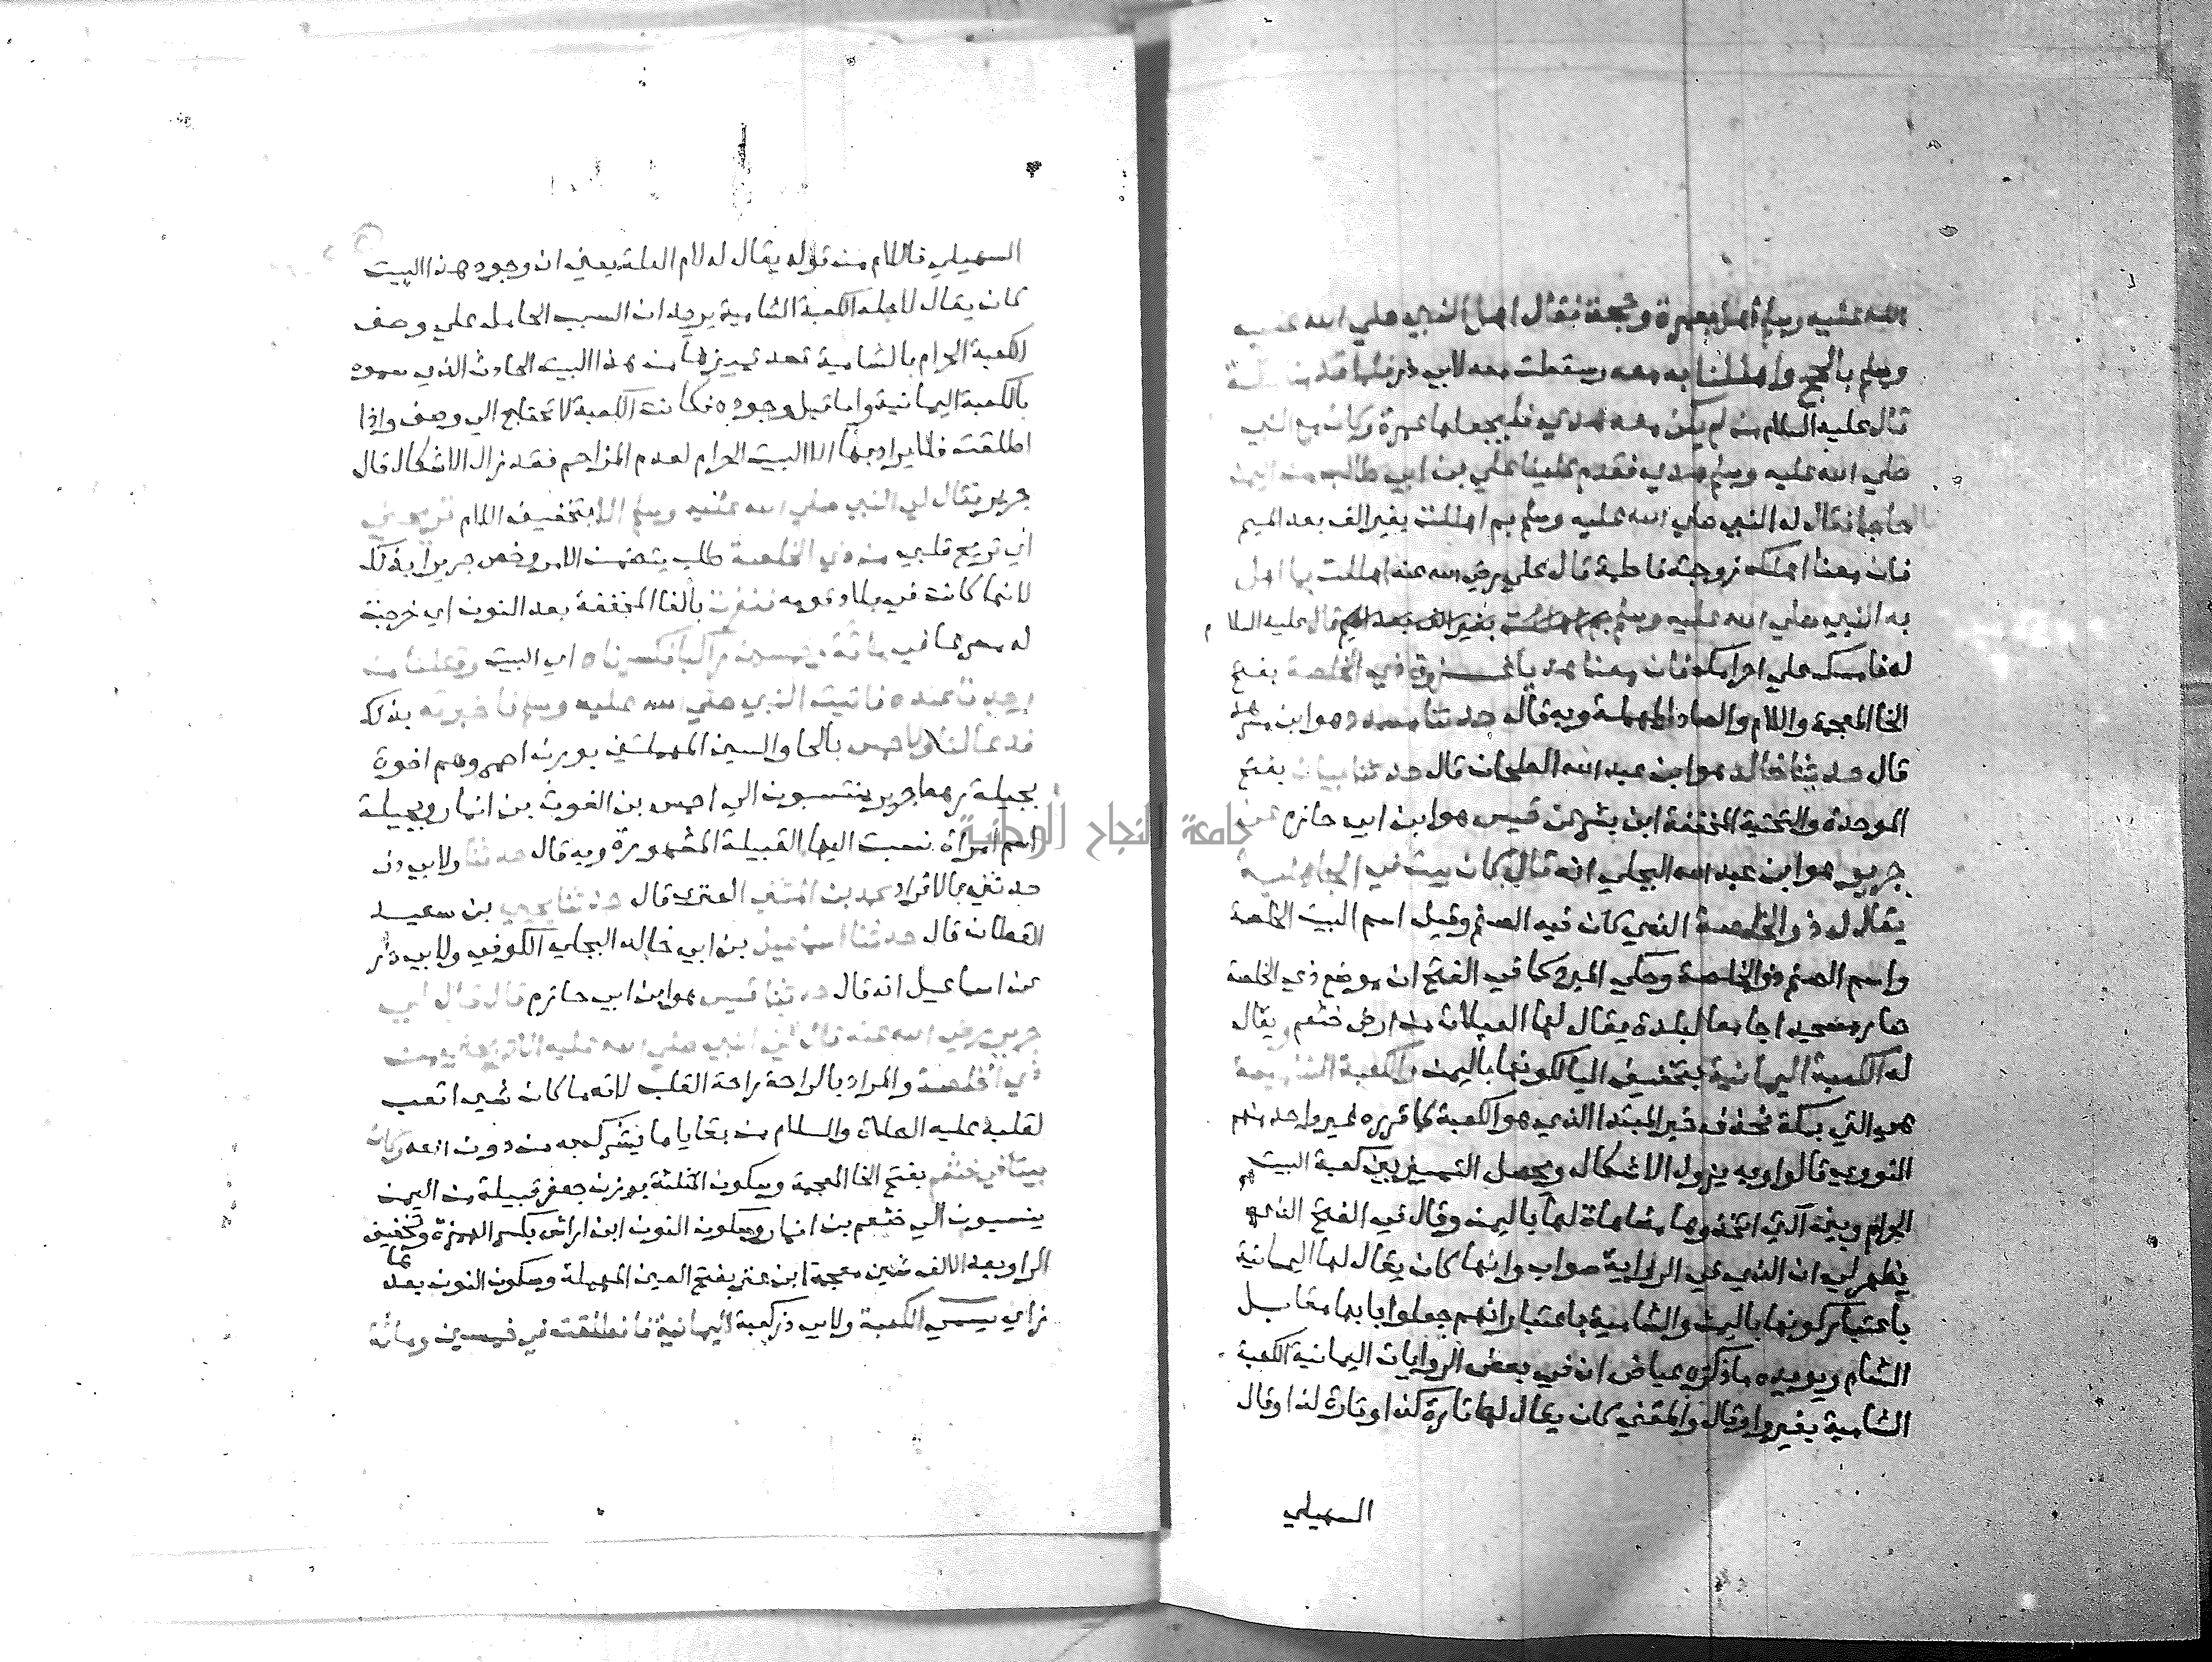 الله عليه وسلم أهل بعمرة وحجة فقال اهل النبي صلي الله عليه
وسلم بالحج واهللنا به معه وسقطت معه لابي ذر فلما قدمنا مكة
قال عليه السلام من لم يكن معه هدي فليجعلها عمرة وكان مع النبي
صلي الله عليه وسلم هدي فقدم علينا علي بن ابي طالب من اليمن
حاجا فقال له النبي صلي الله عليه وسلم بم اهللت بغير الف بعد الميم
فان معنا اهلك زوجته فاطمة قال علي رضي الله عنه اهللت بما اهل
به النبي صلي الله عليه وسلم بم اهللت بغير الف بعد الميم قال عليه السلام
له فامسك علي احرامك فان معنا هديا غزوة ذي الخلصة بفتح
الخا المعجمة واللام والصاد المهملة وبه قال حدثنا مسدد هو ابن مسرهد
قال حدثنا خالد هو ابن عبد الله الطحان قال حدثنا بيان بفتح
الموحدة والتحتية المخففة ابن بشر عن قيس هو ابن ابي حازم عن
جرير هو ابن عبد الله البجلي انه قال كان بيت في الجاهلية
يقال له ذو الخلصة الذي كان فيه الصنم وقيل اسم البيت الخلصة
واسم الصنم ذو الخلصة وحكي المبرد كما في الفتح ان موضع ذي الخلصة
صار مسجدا جامعا لبلدة يقال لها العبلات من ارض خثعم ويقال
له الكعبة اليمانية بتخفيف اليا لكونها باليمن والكعبة الشامية
هي التي بمكة فحذف خبر المبتدا الذي هو الكعبة كما قرره غير واحد منهم
النووي قالوا وبه يزول الاشكال ويحصل التمييز بين كعبة البيت
الحرام وبين التي اتخذوها مضاهاة لها باليمن وقال في الفتح الذي
يظهر لي ان الذي في الرواية صواب وانها كان يقال لها اليمانية
باعتبار كونها باليمن والشامية باعتبار انهم جعلوا بابها مقابل
الشام ويؤيده ما ذكره عياض ان في بعض الروايات اليمانية الكعبة
الشامية بغير واو قال والمعني كان يقال لها تارة كذا وتارة كذا وقال
السهيلي
السهيلي فاللام من قوله يقال له لام العلة يعني ان وجود هذا البيت
كان يقال لاجله الكعبة الشامية يريد ان السبب الحامل علي وصف
الكعبة الحرام بالشامية قصد تمييزها من هذا البيت الحادث الذي سموه
بالكعبة اليمانية واما قبل وجوده فكانت الكعبة لا تحتاج الي وصف واذا
اطلقت فلا يراد بها الا البيت الحرام لعدم المزاحم فقد زال الاشكال قال
جرير فقال لي النبي صلي الله عليه وسلم الا بتخفيف اللام تريحني
اي تريح قلبي من ذي الخلصة طلب يتضمن الامر وخص جريرا بذلك
لانها كانت في بلاد قومه فنفرت بالفا المخففة بعد النون اي خرجت
له مسرعا في مائة وخمسين راكبا فكسرناه اي البيت وقتلنا من
وجدنا عنده فاتيت النبي صلي الله عليه وسلم فاخبرته بذلك
فدعا لنا ولاحمس بالحا والسين المهملتين بوزن احمر وهم اخوة
بجيلة رهط جرير ينتسبون الي احمس بن الغوث بن انمار وبجيلة
اسم امرأة نسبت اليها القبيلة المشهورة وبه قال حدثنا ولابي ذر
حدثني بالافراد محمد بن المثني العنزي قال حدثنا يحيي بن سعيد
القطان قال حدثنا اسماعيل بن ابي خالد البجلي الكوفي ولابي ذر
عن اسماعيل انه قال حدثنا قيس هو ابن ابي حازم قال قال لي
جرير رضي الله عنه قال لي النبي صلي الله عليه الا تريحني من
ذي الخلصة والمراد بالراحة راحة القلب لانه ما كان شي اتعب
لقلبه عليه الصلاة والسلام من بقايا ما يشرك به من دون الله وكان
بيتا في خثعم بفتح الخا المعجمة وسكون المثلثة بوزن جعفر قبيلة من اليمن
ينسبون الي خثعم بن انمار وسكون النون ابن اراش بكسر الهمزة وتخفيف
الرا وبعد الالف شين معجمة ابن عنز بفتح العين المهملة وسكون النون بعدها
زاي يسمي الكعبة ولابي ذر كعبة اليمانية فانطلقت في خمسين ومائة
جامعة النجاح الوطنية